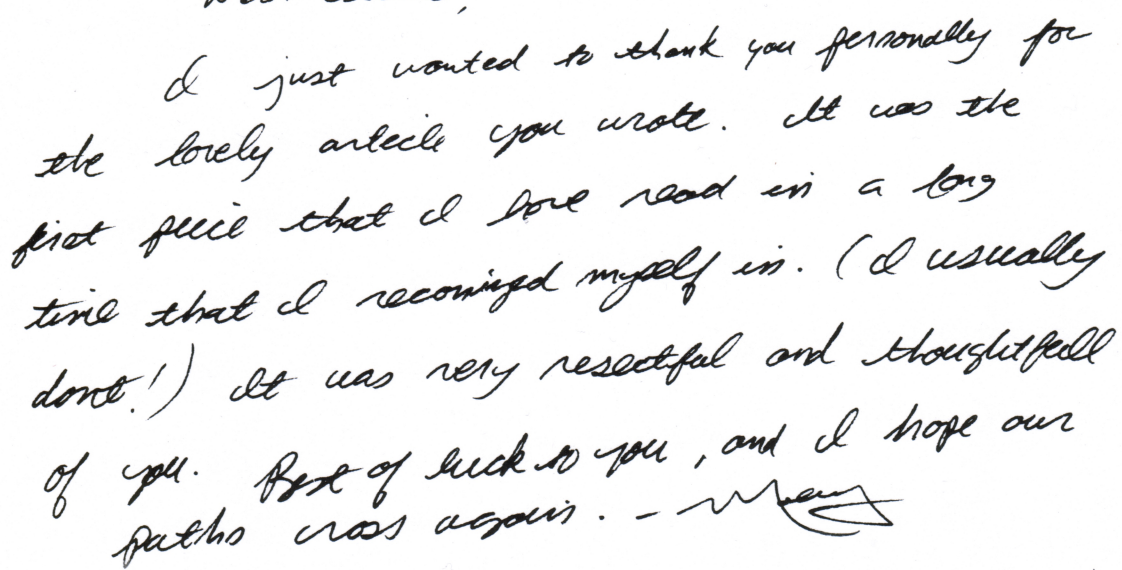 I just wanted to thank you personally for
the lovely article you wrote. It was the
first piece that I have read in a long
time that I reconized myself in. (I usually
dont!) It was very resectful and thoughtfull
of you. Best of luck to you, and I hope our
paths cross again. -